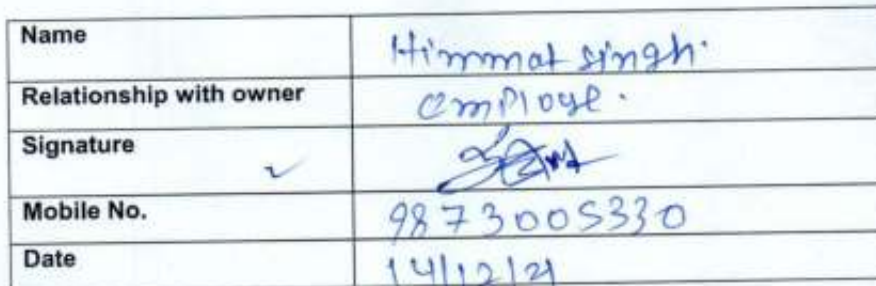 Name Himmat singh.
Relationship with owner employe.
Signature
Mobile No. 9873005330
Date 14/12/21